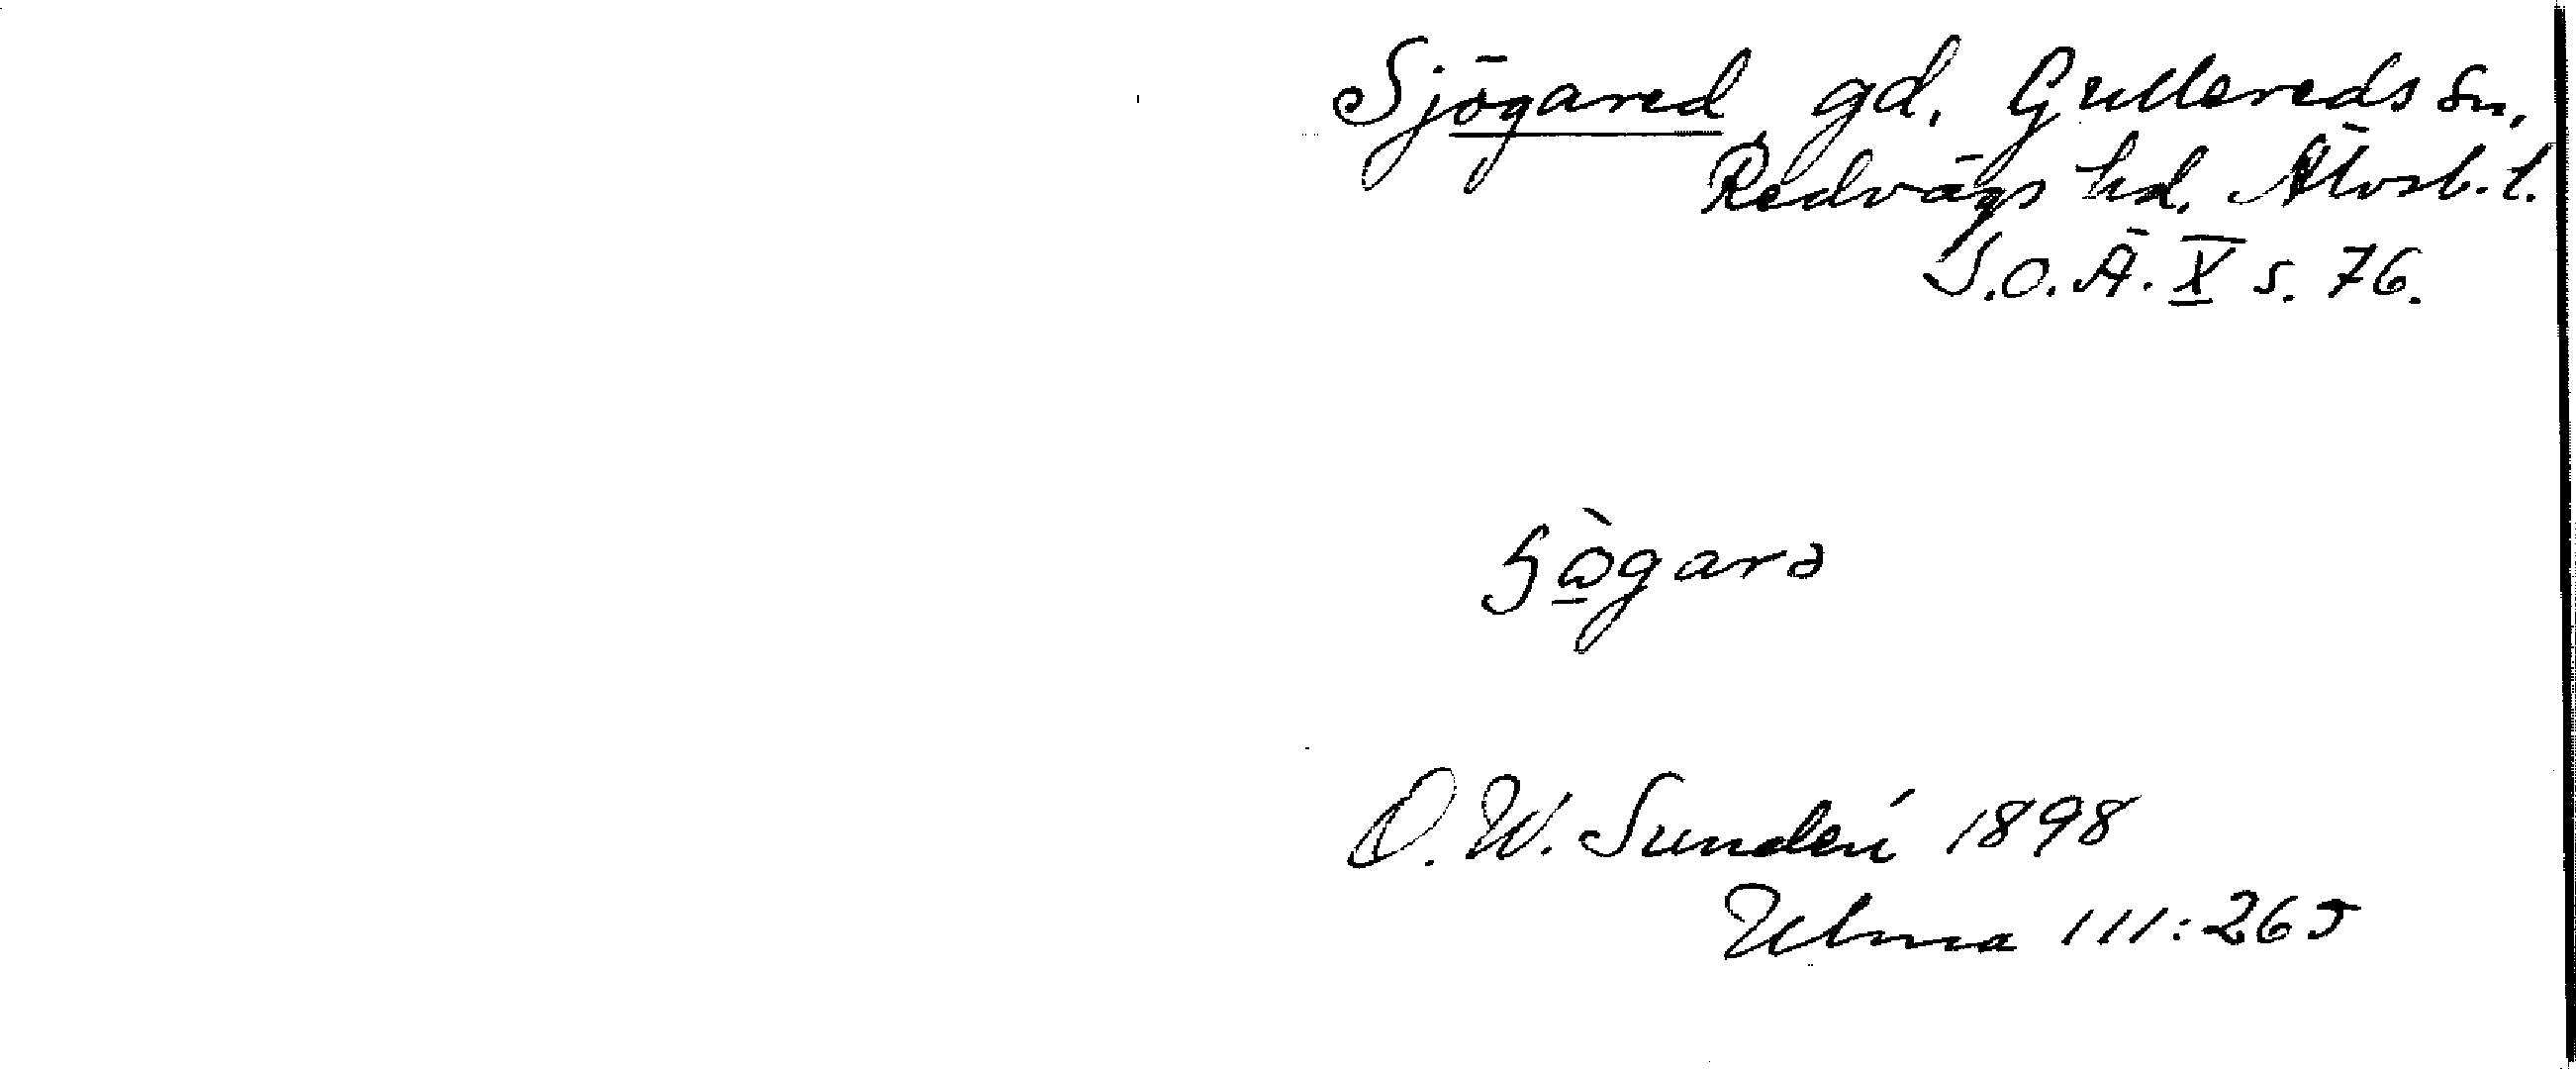 Sjögared gd. Gullereds sn,
Redvägs hd. Älvsb. l.
S.O.Ä. X s. 76.
O. W. Sundén 1898
Ulma 111:265